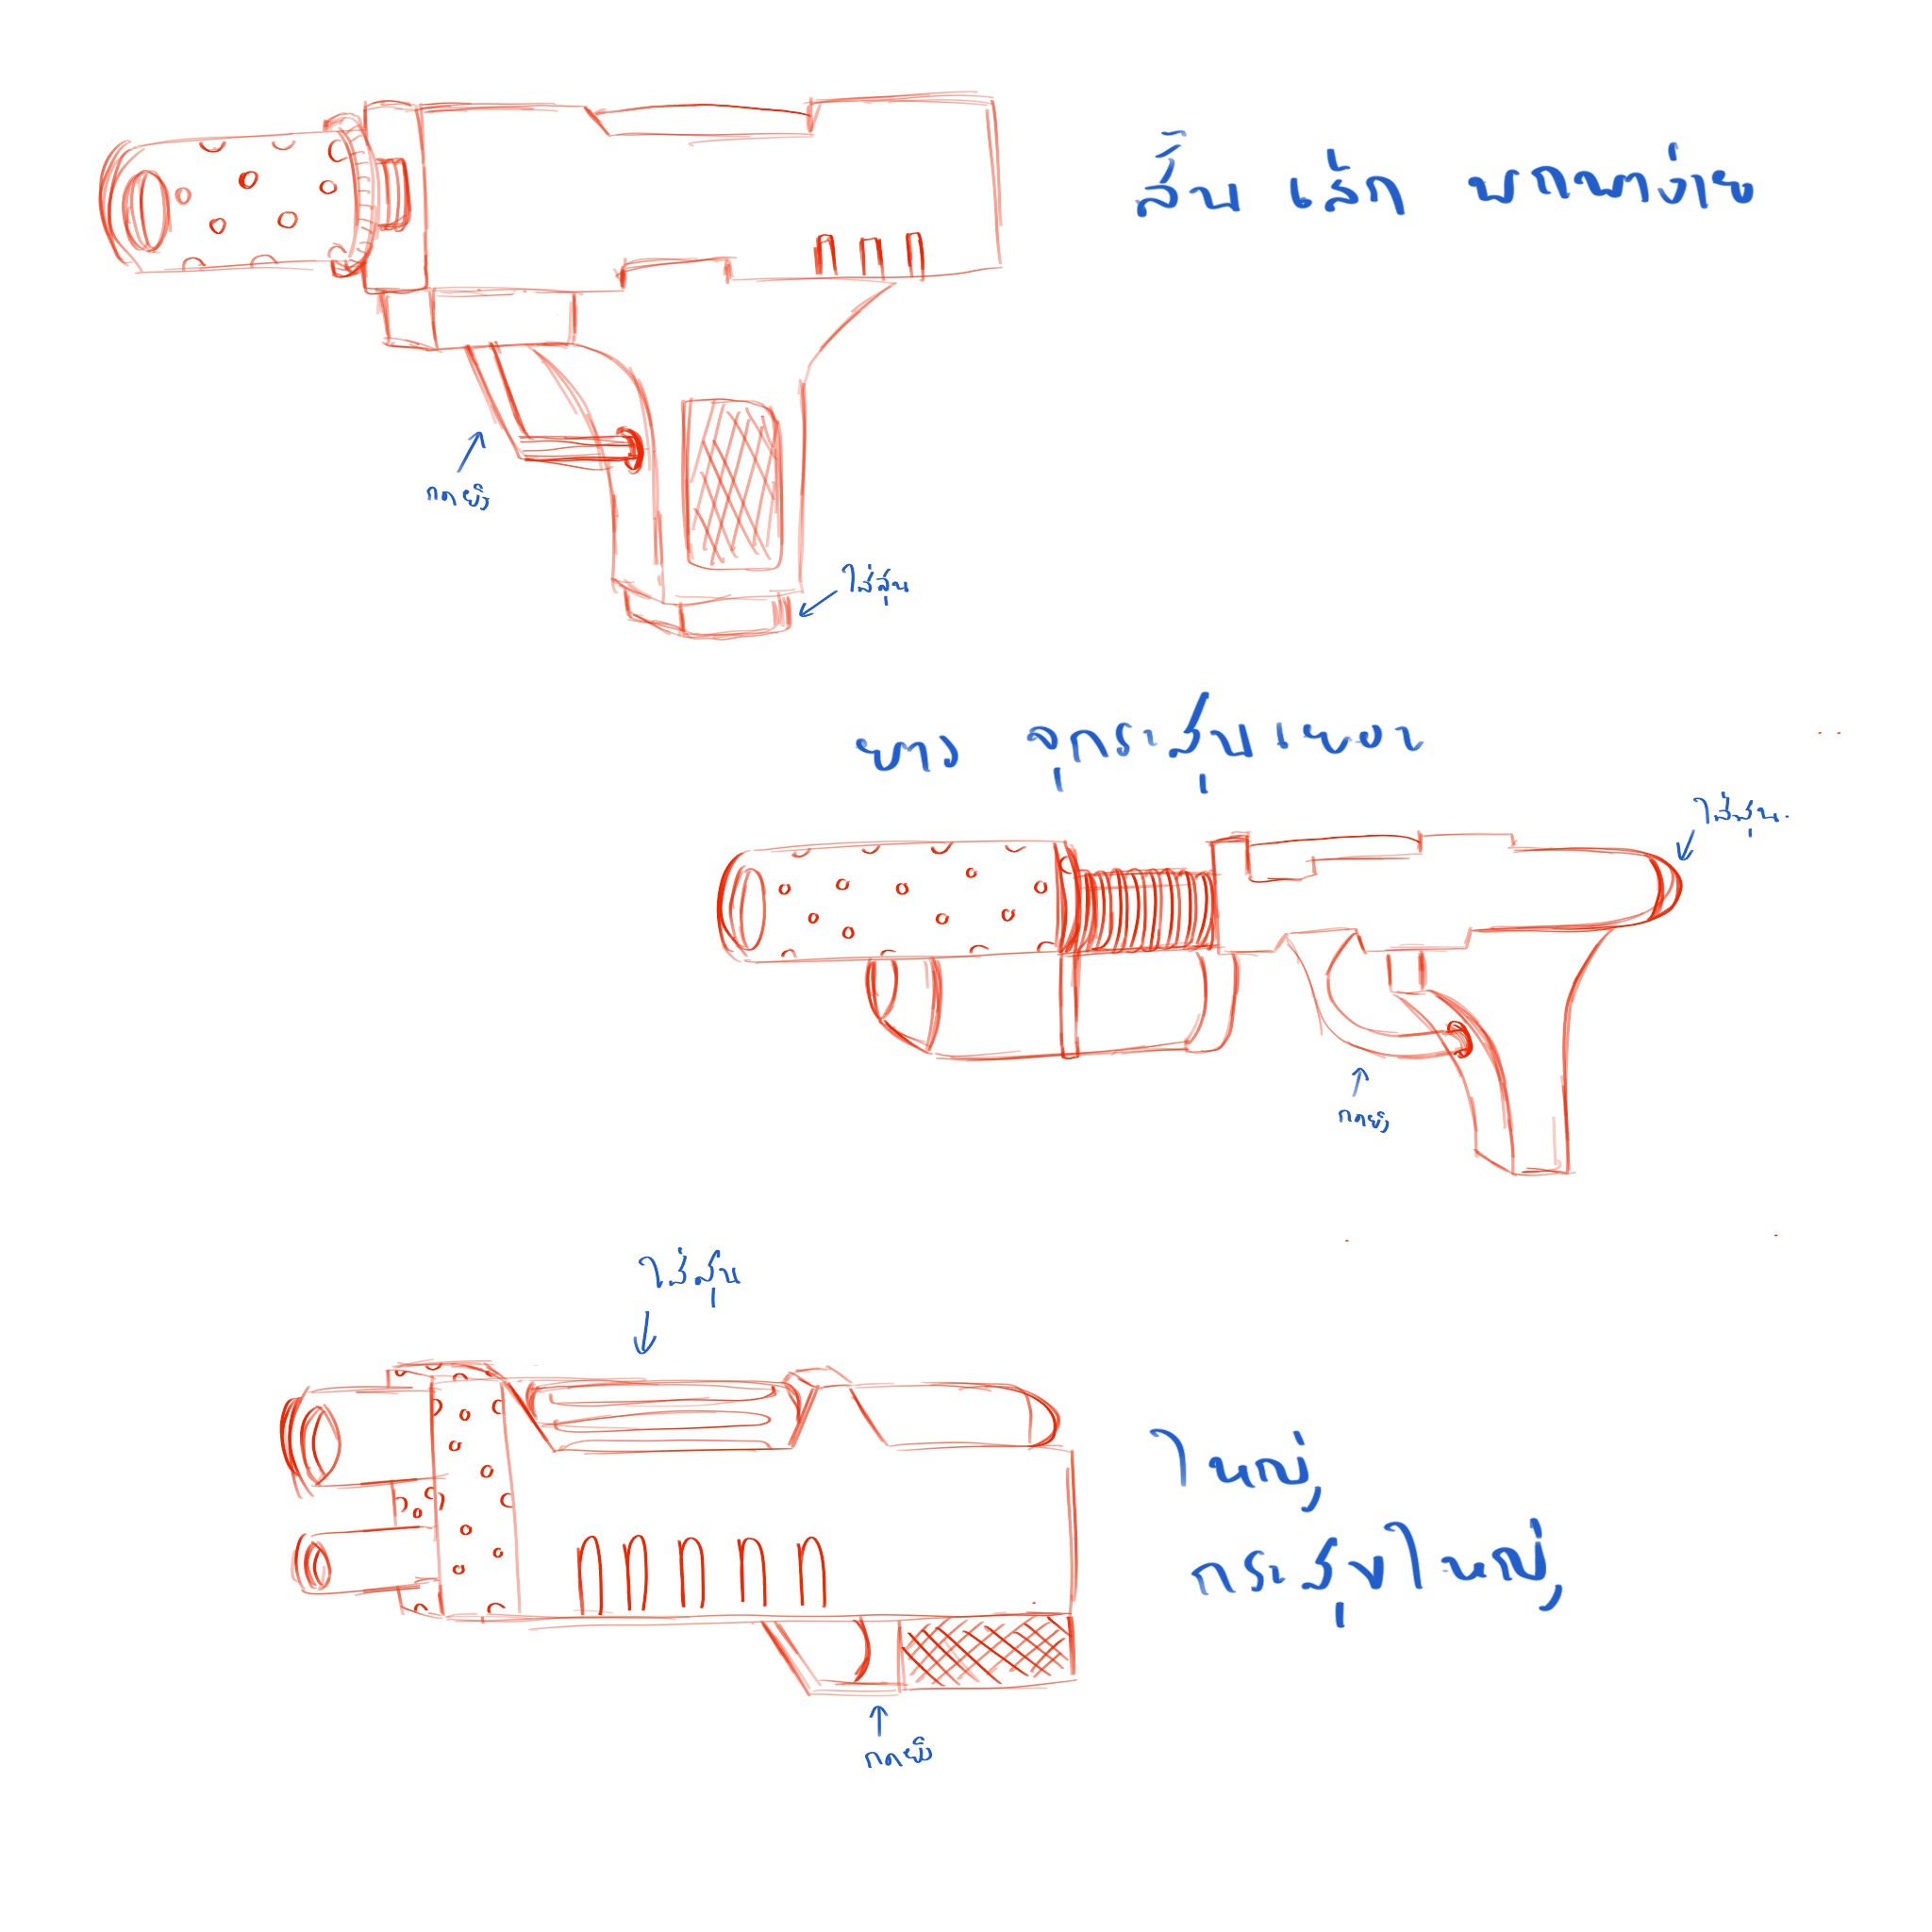 สั้น เล็ก พกพาง่าย
กดยิง
ใส่สุน
ยาว จุกระสุนเยอะ
ใส่สุน.
กดยิง
ใส่สุน
ใหญ่,
กระสุนใหญ่,
กดยิง